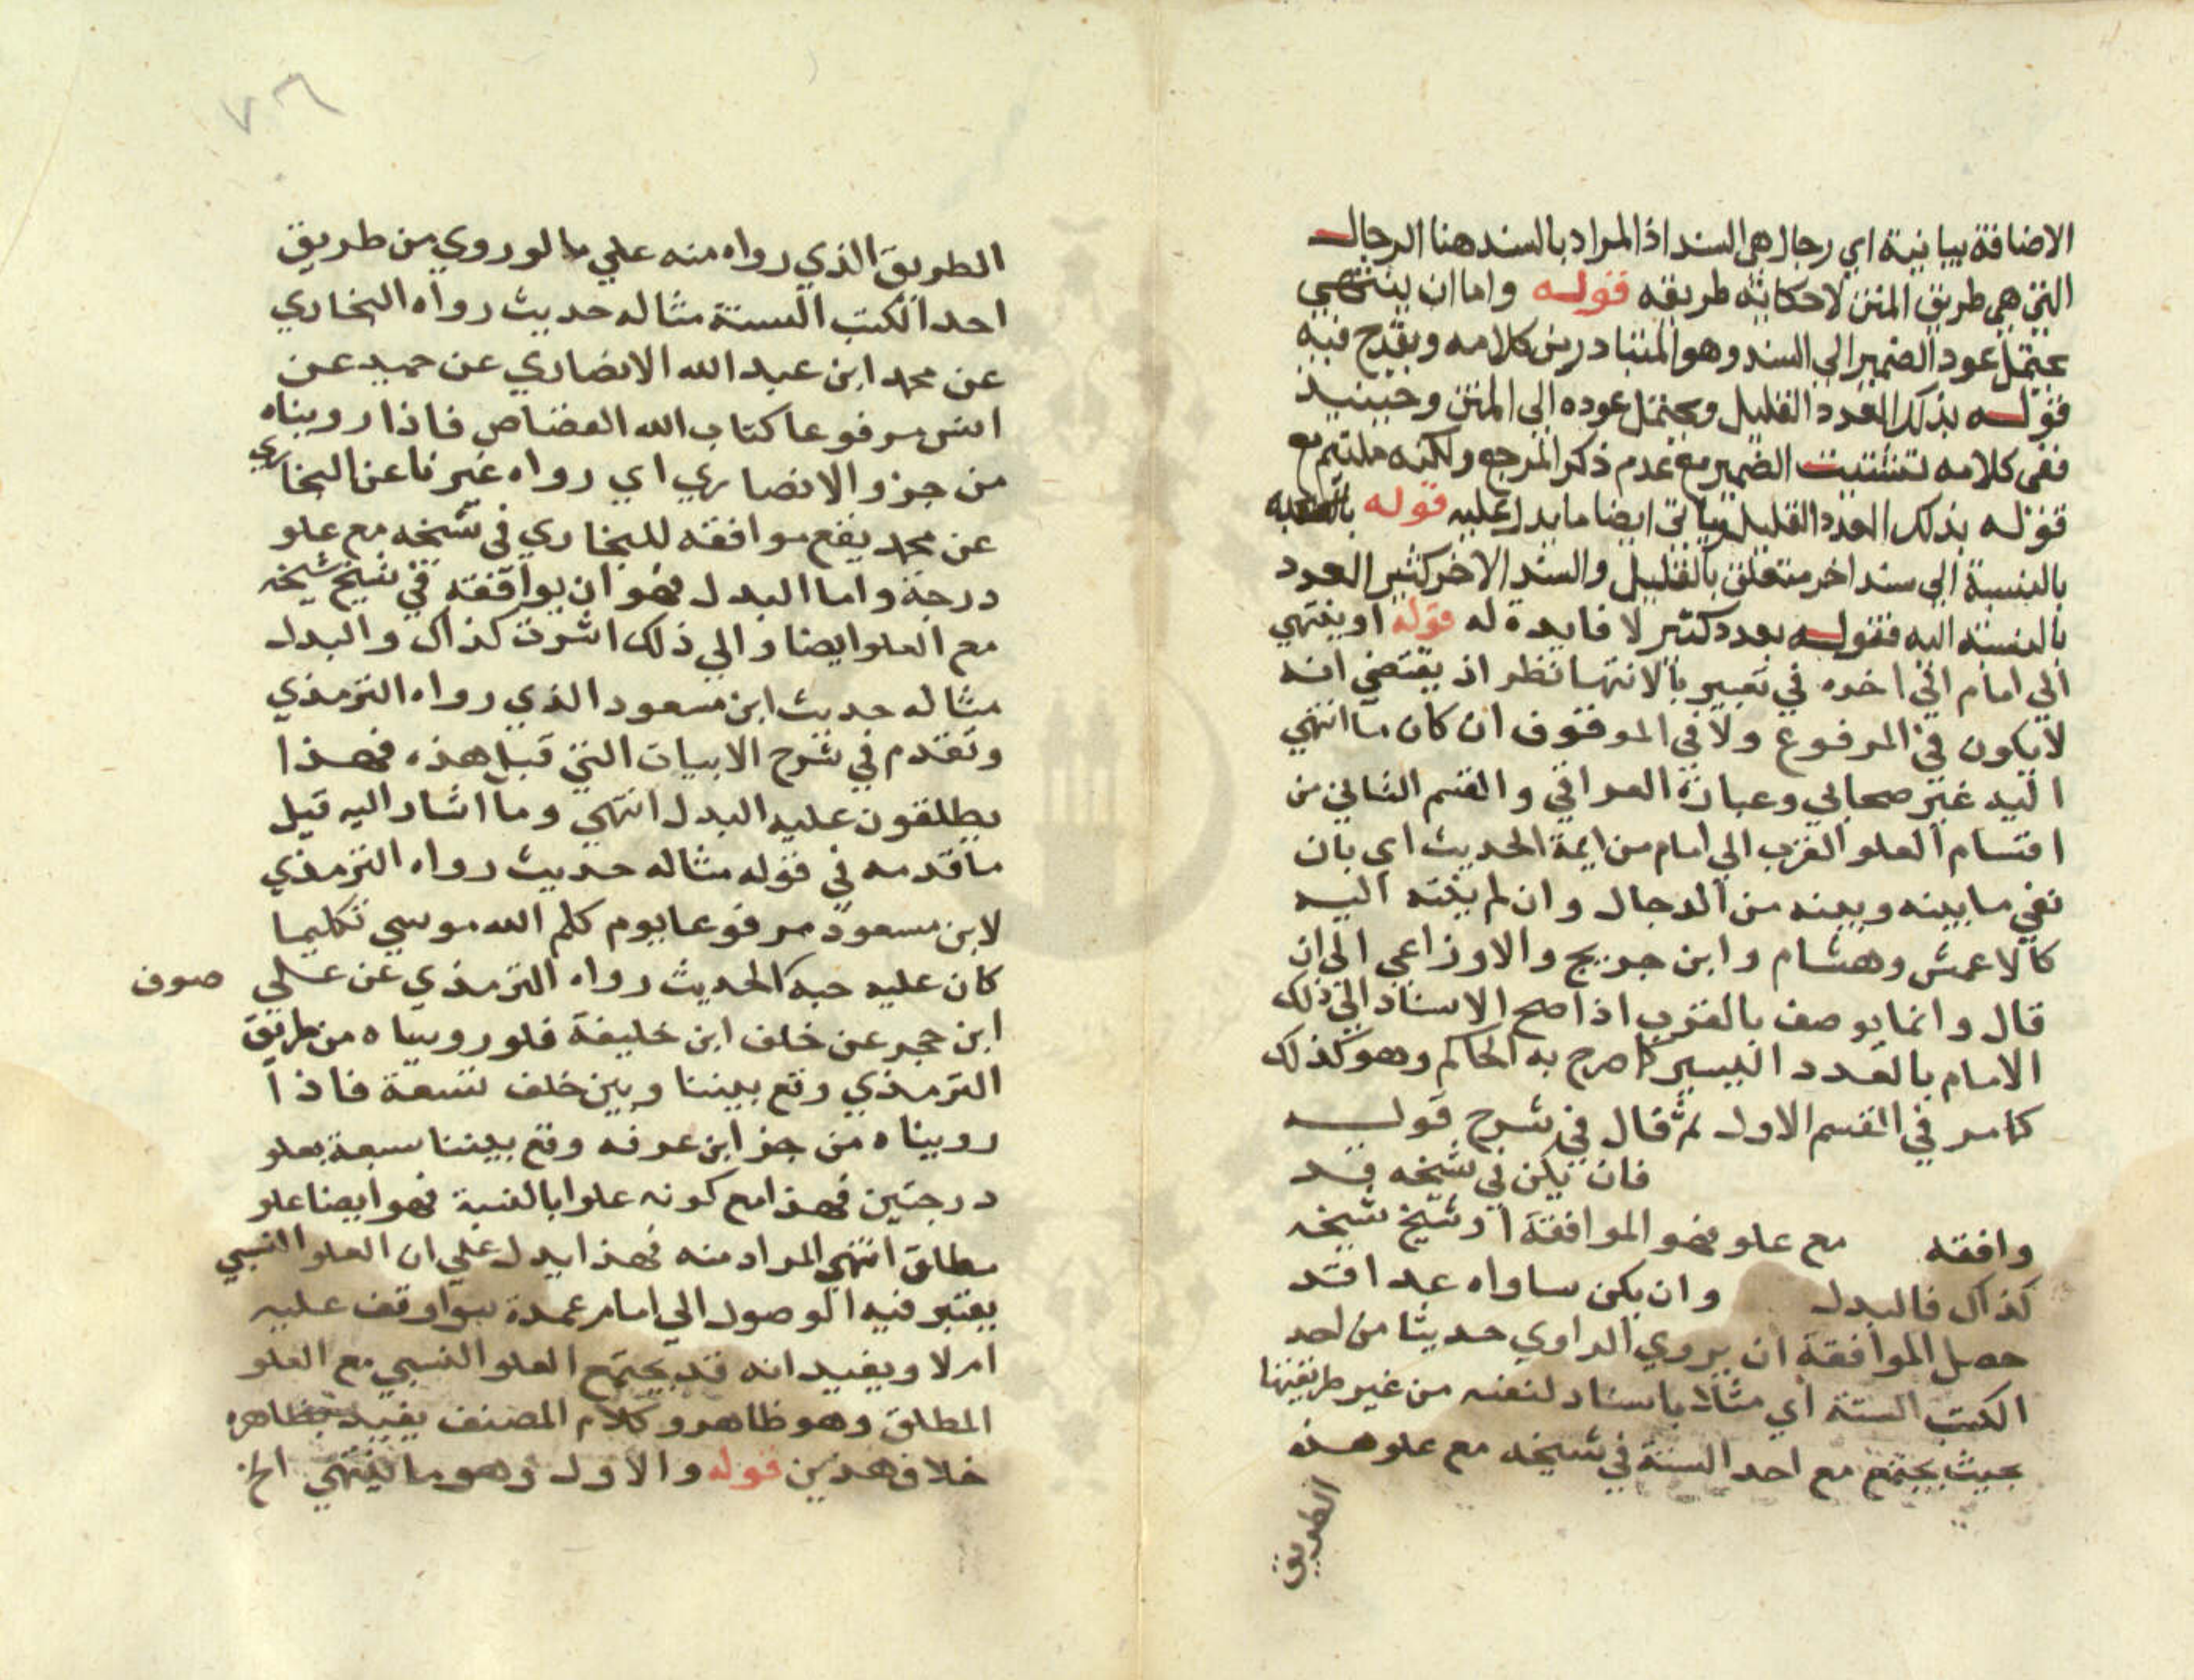 الاضافة بيانية اي رجال هي السند اذ المراد بالسند هنا الرجال
التي هي طريق المتن لا حكاية طريقه قوله واما ان ينتهي
يحتمل عود الضمير الي السند وهو المتبادر من كلامه ويقدح فيه
قوله بذلك العدد القليل ويحتمل عوده الي المتن وحينيذ
ففي كلامه تشتيت الضمير مع عدم ذكر المرجع ولكنه ملتيم مع
قوله بذلك العدد القليل وياتي ايضا ما يدل عليه قوله
بالنسبة الي سند اخر متعلق بالقليل والسند الاخر كثير العدد
بالنسبة اليه فقوله بعدد كثير لا فايدة له قوله او ينتهي
الي امام الي اخره في تعبير بالانتها نظر اذ يقتضي انه
لا يكون في المرفوع ولا في الموقوف ان كان ما انتهي
اليه غير صحابي وعبارة العراقي والقسم الثاني من
اقسام العلو القرب الي امام من ايمة الحديث اي بان
نفي ما بينه وبينه من الرجال وان لم ينته اليه
كالاعمش وهشام وابن جريج والاوزاعي الي ان
قال وانما يوصف بالقرب اذا صح الاسناد الي ذلك
الامام بالعدد اليسير كما صرح به الحاكم وهو كذلك
كما مر في القسم الاول ثم قال في شرح قوله
فان يكن في شيخه قد
وافقه مع علو فهو الموافقة او شيخ شيخه
كذاك فالبدل وان يكن ساواه عدا قد
حصل الموافقة ان يروي الراوي حديثا من احد
الكتب الستة اي مثلا باسناد لنفسه من غير طريقها
بحيث يجتمع مع احد الستة في شيخه مع علو هذه
الطريق
٧٦
الطريق الذي رواه منه علي ما لو روي من طريق
احد الكتب الستة مثاله حديث رواه البخاري
عن محمد ابن عبد الله الانصاري عن حميد عن
انس مرفوعا كتاب الله القصاص فاذا رويناه
من جزو الانصاري اي رواه غيرنا عن البخاري
عن محمد يقع موافقه للبخاري في شيخه مع علو
درجة واما البدل فهو ان يوافقه في شيخ شيخه
مع العلو ايضا والي ذلك اشرت كذاك والبدل
مثاله حديث ابن مسعود الذي رواه الترمذي
وتقدم في شرح الابيات التي قبل هذه فهذا
يطلقون عليه البدل انتهي وما اشار اليه قبل
ما قدمه في قوله مثاله حديث رواه الترمذي
لابن مسعود مرفوعا يوم كلم الله موسي تكليما
كان عليه جبه الحديث رواه الترمذي عن علي صوف
ابن حجر عن خلف ابن خليفة فلو رويناه من طريق
الترمذي وقع بيننا وبين خلف تسعة فاذا
رويناه من جز ابن عرفه وقع بيننا سبعة بعلو
درجتين فهذا مع كونه علوا بالنسبة فهو ايضا علو
مطلق انتهي المراد منه فهذا يدل علي ان العلو النسبي
يعتبر فيه الوصول الي امام عمدة سوا وقف عليه
ام لا ويفيد انه قد يجتمع العلو النسبي مع العلو
المطلق وهو ظاهر وكلام المصنف يفيد بظاهره
خلاف هذين قوله والاول وهو ما ينتهي الخ